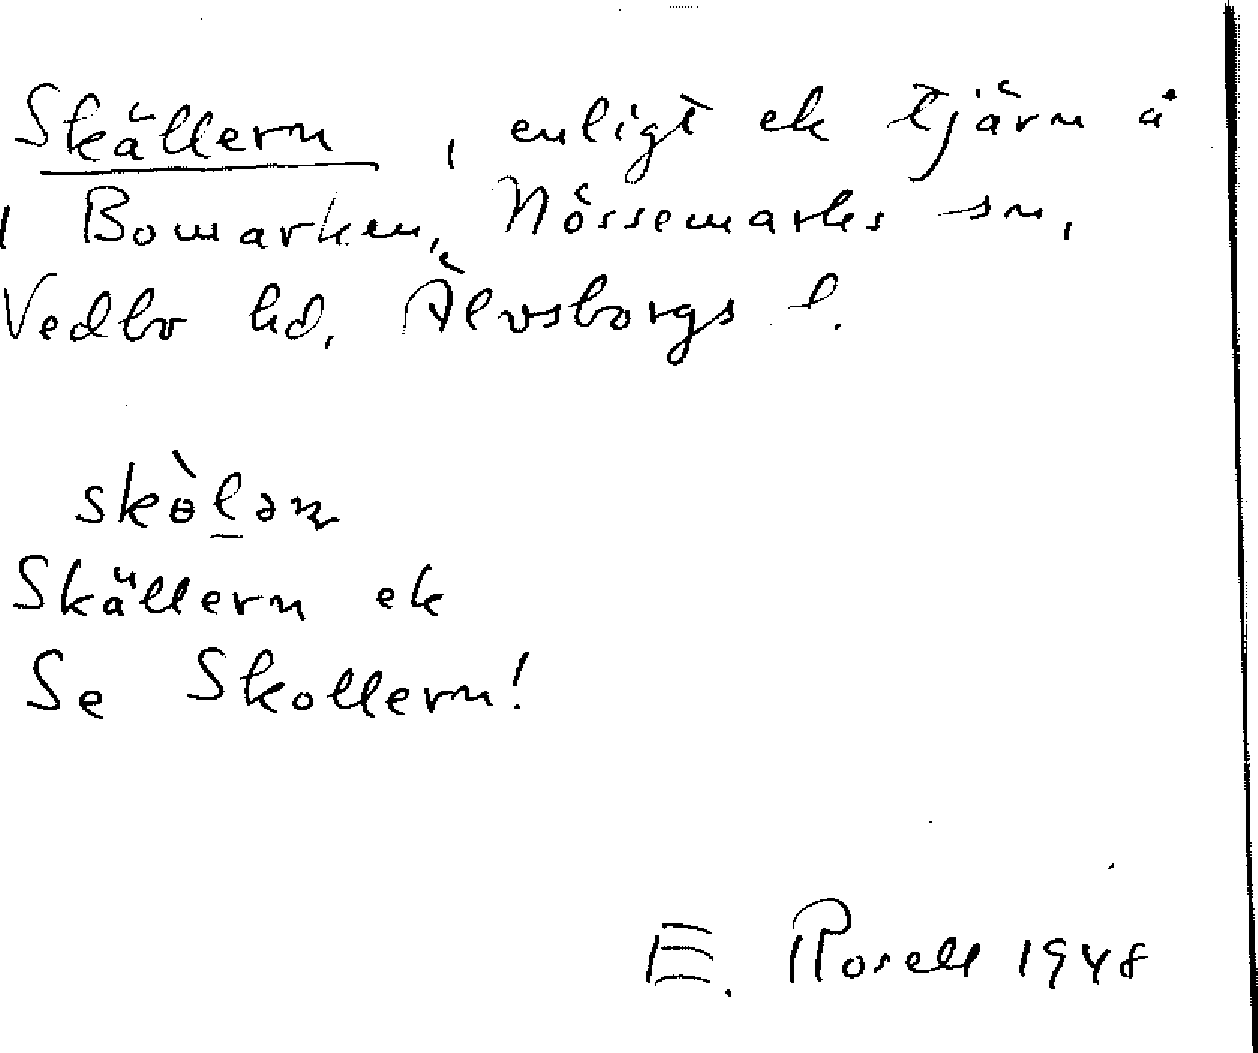 Skällern, enligt ek tjärn å
1 Bomarken, Nössemarks sn,
Vedbo hd, Älvsborgs l.
Skällern ek
Se Skollern!
E. Rosell 1948